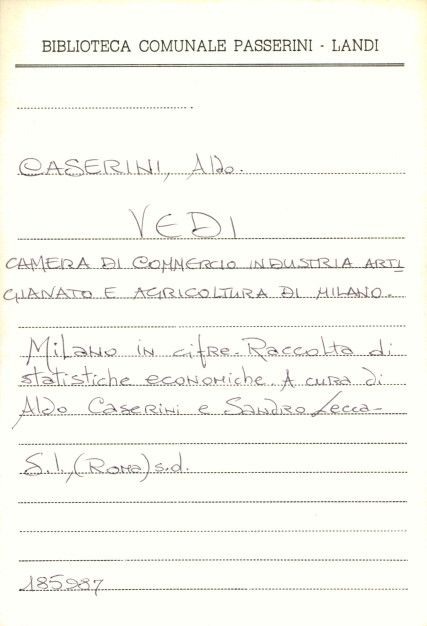 BIBLIOTECA COMUNALE PASSERINI - LANDI
CASERINI, Aldo.
VEDI
CAMERA DI COMMERCIO INDUSTRIA ARTI
GIANATO E AGRICOLTURA DI MILANO.
Milano in cifre. Raccolta di
statistiche economiche. A cura di
Aldo Caserini e Sandro Lecca-
S.l., (Roma) s.d.
185987